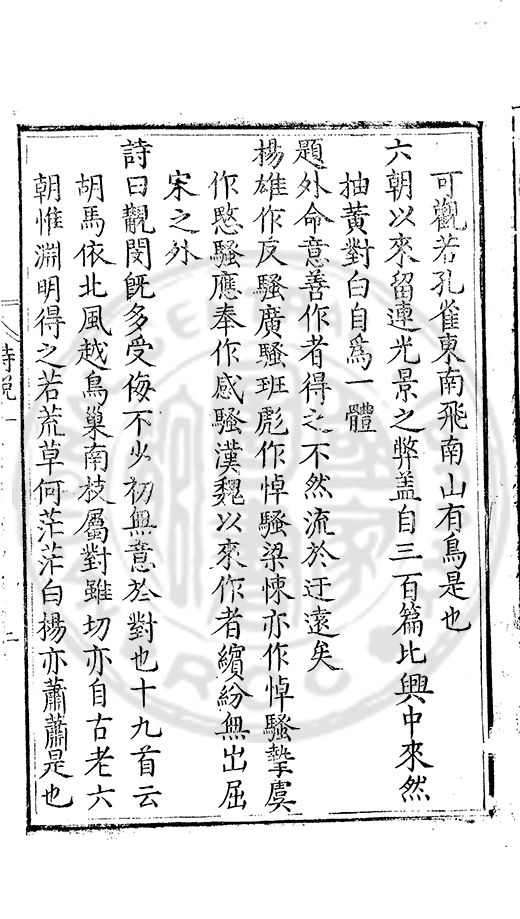 可觀若孔雀東南飛南山有鳥是也
六朝以來留連光景之弊盖自三百篇比興中來然
抽黃對白自爲一體
題外命意善作者得之不然流於迂遠矣
楊雄作反騷廣騷班彪作悼騷梁悚亦作悼騷摯虞
作愍騷應奉作感騷漢魏以來作者繽紛無出屈
宋之外
詩曰觀閔旣多受侮不少初無意於對也十九首云
胡馬依北風越鳥巢南枝屬對雖切亦自古老六
朝惟淵明得之若荒草何茫茫白楊亦蕭蕭是也
詩說